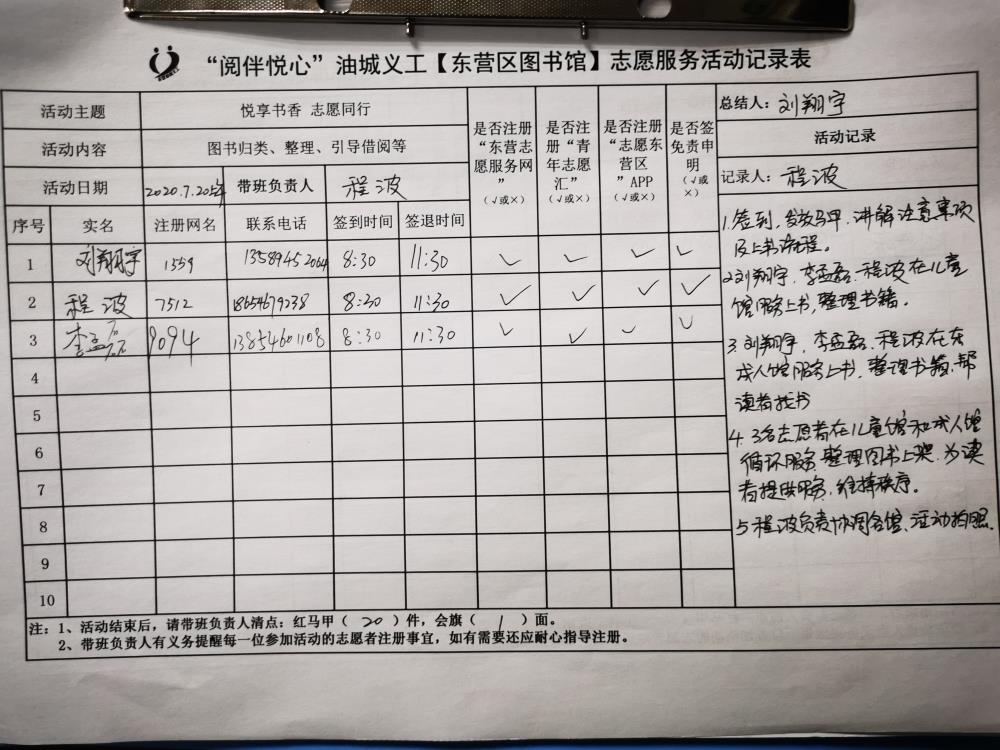 “阅伴悦心”油城义工【东营区图书馆】志愿服务活动记录表
活动主题 悦享书香 志愿同行
活动内容 图书归类、整理、引导借阅等
活动日期 2020.7.20 带班负责人 程波
是否注册“东营志愿服务网”（√或×）
是否注册“青年志愿汇”（√或×）
是否注册“志愿东营区”APP（√或×）
是否签免责申明（√或×）
总结人：刘翔宇
活动记录
记录人：程波
序号 实名 注册网名 联系电话 签到时间 签退时间
1 刘翔宇 1559 13589452064 8:30 11:30 √ √ √ √
2 程波 7512 18654679238 8:30 11:30 √ √ √ √
3 李孟磊 9094 13854601108 8:30 11:30 √ √ √ √
4
5
6
7
8
9
10
1.签到，发放马甲，讲解注意事项
及上书流程。
2.刘翔宇，李孟磊，程波在儿童
馆服务上书，整理书籍。
3.刘翔宇，李孟磊，程波在
成人馆服务上书，整理书籍，帮
读者找书
4.3名志愿者在儿童馆和成人馆
循环服务，整理图书上架，为读
者提供服务，维持秩序。
5.程波负责协调各馆、活动拍照。
注：1、活动结束后，请带班负责人清点：红马甲（ 20 ）件，会旗（ 1 ）面。
2、带班负责人有义务提醒每一位参加活动的志愿者注册事宜，如有需要还应耐心指导注册。